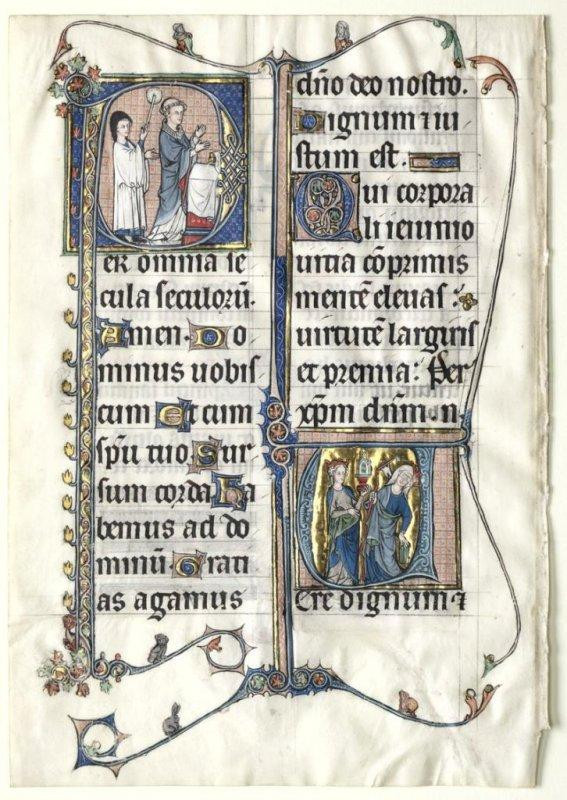 er omnia se
cula seculoruͫ.
Amen. Do
minus uobis
cum Et cum
sp̄u tuo. Sur
sum corda Ha
bemus ad do
minū. Grati
as agamus
dn̄o deo nostro.
Dignum ⁊ iu
stum est.
Qui corpora
li ieiunio
uitia cōprimis
mentē eleuas
uirtutē largiris
et premia: Per
xp̄m dn̄m n.
Ere dignum ⁊